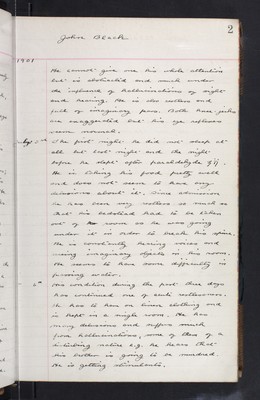 2
John Black
1901
He cannot give one his whole attention
but is abstracted and much under
the influence of hallucinations of sight
and hearing. He is also restless and
full of imaginary fears. Both knee-jerks
are exaggerated but his eye reflexes
seem normal.
The first night he did not sleep at
all but last night and the night
before he slept after paraldehyde
He is taking his food pretty well
and does not seem to have any
delusions about it. Since admission
he has been very restless so much so
that his bedstead had to be taken
out of the room as he was going
under it in order to break his spine.
He is constantly hearing voices and
seeing imaginary objects in his room.
He seems to have some difficulty in
passing water.
His condition during the past three days
has continued one of acute restlessness.
He has to have on linen clothing and
is kept in a single room. He has
many delusions and suffers much
from hallucinations, some of them of a
disturbing nature e.g. he hears that
his brother is going to be murdered.
He is getting stimulants.